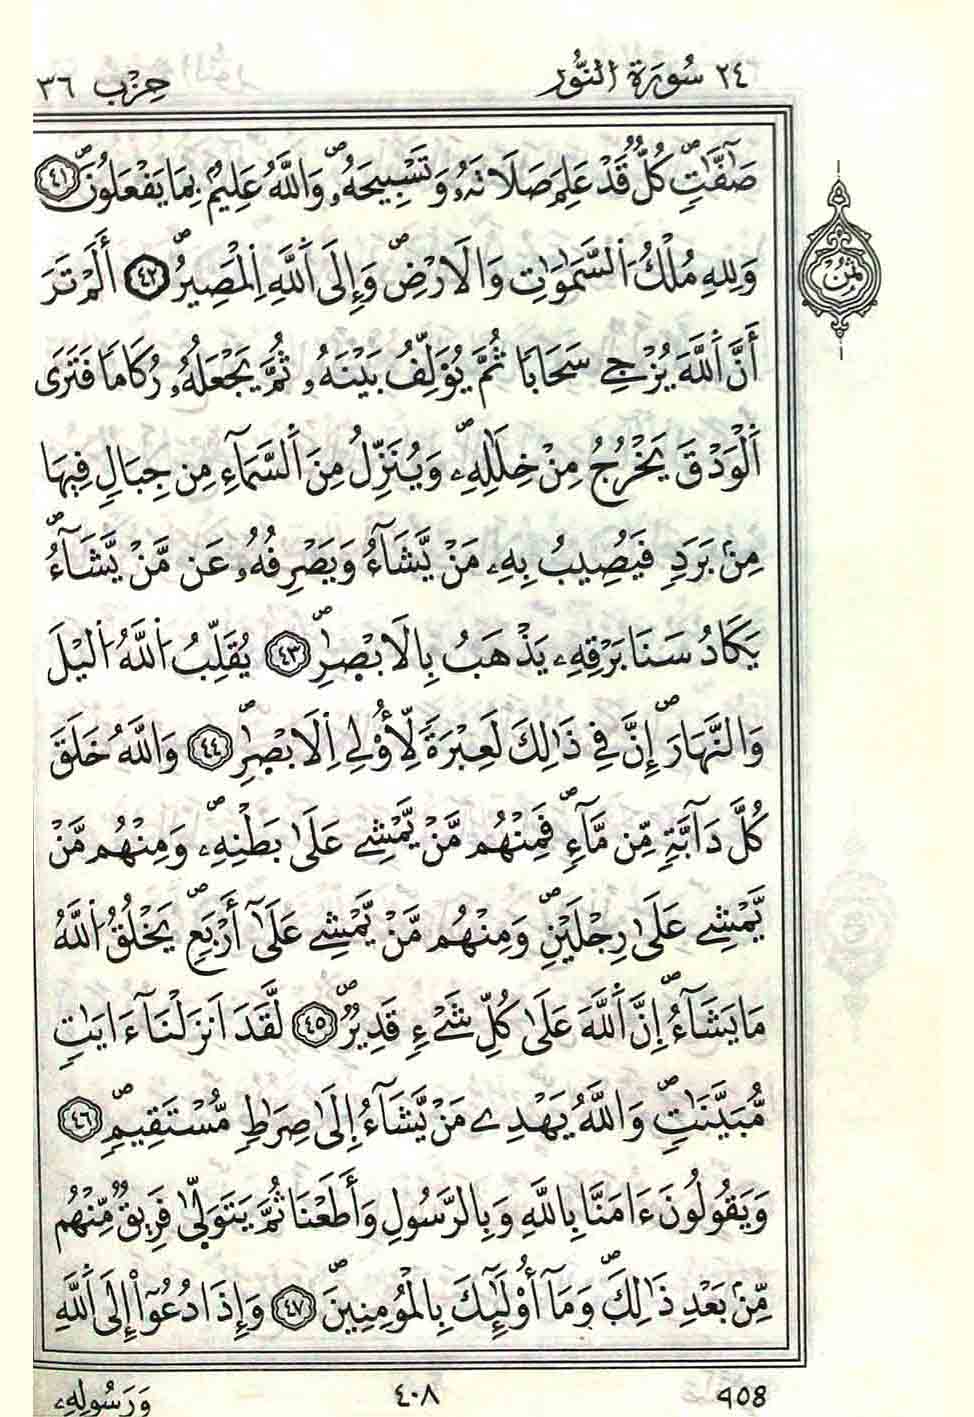 ٢٤ سُورَةُ اُ۬لنُّور حِزْب ٣٦
صَٰٓفَّٰتٖۖ كُلّٞ قَدْ عَلِمَ صَلَاتَهُۥ وَتَسْبِيحَهُۥۖ وَاللَّهُ عَلِيمُۢ بِمَا يَفْعَلُونَۖ ٤١
وَلِلهِ مُلْكُ اُ۬لسَّمَٰوَٰتِ وَالَارْضِۖ وَإِلَى اَ۬للَّهِ اِ۬لْمَصِيرُۖ ٤٢ أَلَمْ تَرَ
ثمن
أَنَّ اَ۬للَّهَ يُزْجِے سَحَاباٗ ثُمَّ يُؤَلِّفُ بَيْنَهُۥ ثُمَّ يَجْعَلُهُۥ رُكَاماٗ فَتَرَى
اَ۬لْوَدْقَ يَخْرُجُ مِنْ خِلَٰلِهِۦۖ وَيُنَزِّلُ مِنَ اَ۬لسَّمَآءِ مِن جِبَالٖ فِيهَا
مِنۢ بَرَدٖ فَيُصِيبُ بِهِۦ مَنْ يَّشَآءُ وَيَصْرِفُهُۥ عَن مَّنْ يَّشَآءُۖ
يَكَادُ سَنَا بَرْقِهِۦ يَذْهَبُ بِالَابْصٰ۪رِۖ ٤٣ يُقَلِّبُ اُ۬للَّهُ اُ۬ليْلَ
وَالنَّهَارَۖ إِنَّ فِے ذَٰلِكَ لَعِبْرَةٗ لِّأُوْلِے اِ۬لَابْصٰ۪رِۖ ٤٤ وَاللَّهُ خَلَقَ
كُلَّ دَآبَّةٖ مِّن مَّآءٖۖ فَمِنْهُم مَّنْ يَّمْشِے عَلَىٰ بَطْنِهِۦۖ وَمِنْهُم مَّنْ
يَّمْشِے عَلَىٰ رِجْلَيْنِۖ وَمِنْهُم مَّنْ يَّمْشِے عَلَىٰٓ أَرْبَعٖۖ يَخْلُقُ اُ۬للَّهُ
مَا يَشَآءُۖ اِنَّ اَ۬للَّهَ عَلَىٰ كُلِّ شَےْءٖ قَدِيرٞۖ ٤٥ لَّقَدَ اَنزَلْنَآ ءَايَٰتٖ
مُّبَيَّنَٰتٖۖ وَاللَّهُ يَهْدِے مَنْ يَّشَآءُ إِلَىٰ صِرَٰطٖ مُّسْتَقِيمٖۖ ٤٦
وَيَقُولُونَ ءَامَنَّا بِاللَّهِ وَبِالرَّسُولِ وَأَطَعْنَا ثُمَّ يَتَوَلّ۪ىٰ فَرِيقٞ مِّنْهُم
مِّنۢ بَعْدِ ذَٰلِكَۖ وَمَآ أُوْلَٰٓئِكَ بِالْمُؤْمِنِينَۖ ٤٧ وَإِذَا دُعُوٓاْ إِلَى اَ۬للَّهِ
٩٥٨ ٤٠٨ وَرَسُولِهِۦ